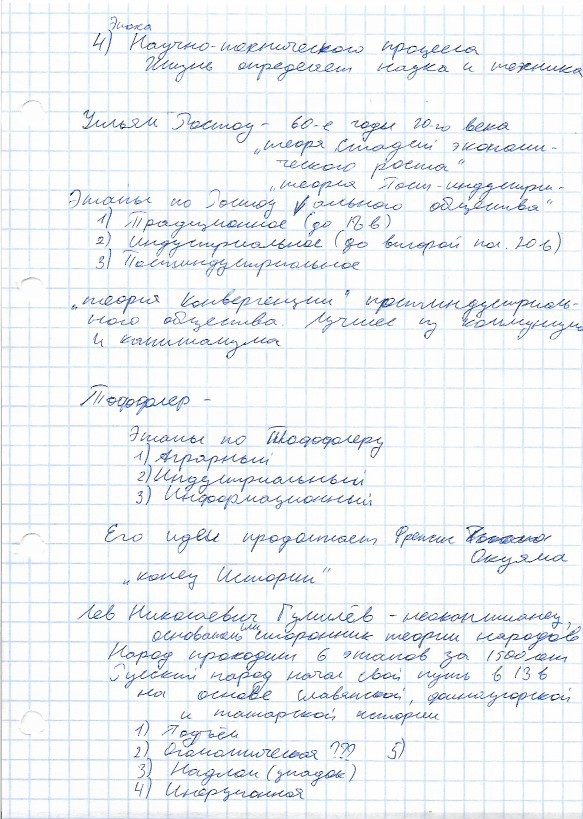 Эпоха
4) Научно-технического процесса
Жизнь определяет наука и техника
Уильям Ростоу - 60-е годы 20-го века
„теоря стадий экономи-
ческого роста"
„теория Пост-индустри-
Этапы по Ростоу √ ального общества"
1) Традиционное (до 18 в)
2) Индустриальное (до второй пол. 20 в)
3) Постиндустриальное
„теория Конвергенции" постиндустриаль-
ного общества. Лучшее из коммуниз
и капитализма
Тоффлер -
Этапы по Тоффлеру
1) Аграрный
2) Индустриальный
3) Информационный
Его идеи продолжает Френсис
Окуяма
„конец Истории"
Лев Николаевич Гумилёв - неокантианец,
основатель или сторонник теории народов
Народ проходит 6 этапов за 1500 лет
Русский народ начал свой путь в 13 в
на основе славянской, финноугорской
и татарской истории
1) Подъём
2) ??? 5)
3) Надлом (упадок)
4) Инерционная